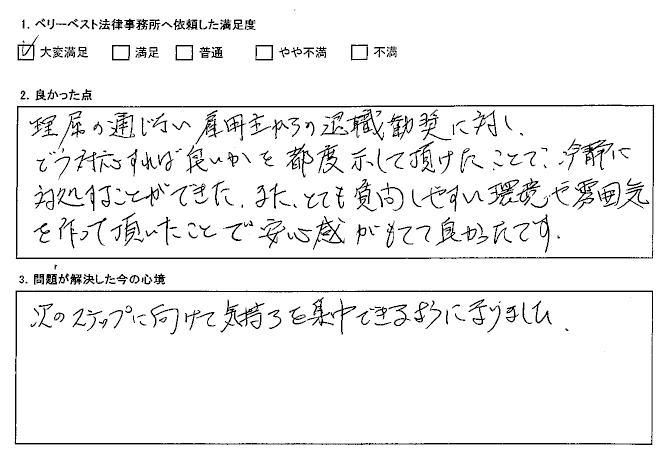 1. ベリーベスト法律事務所へ依頼した満足度
☑ 大変満足 □ 満足 □ 普通 □ やや不満 □ 不満
2. 良かった点
理屈の通じない雇用主からの退職勧奨に対し、
どう対応すれば良いかを都度示して頂けたことで、冷静に
対処することができた。また、とても質問しやすい環境や雰囲気
を作って頂いたことで安心感がもてて良かったです。
3. 問題が解決した今の心境
次のステップに向けて気持ちを集中できるようになりました。